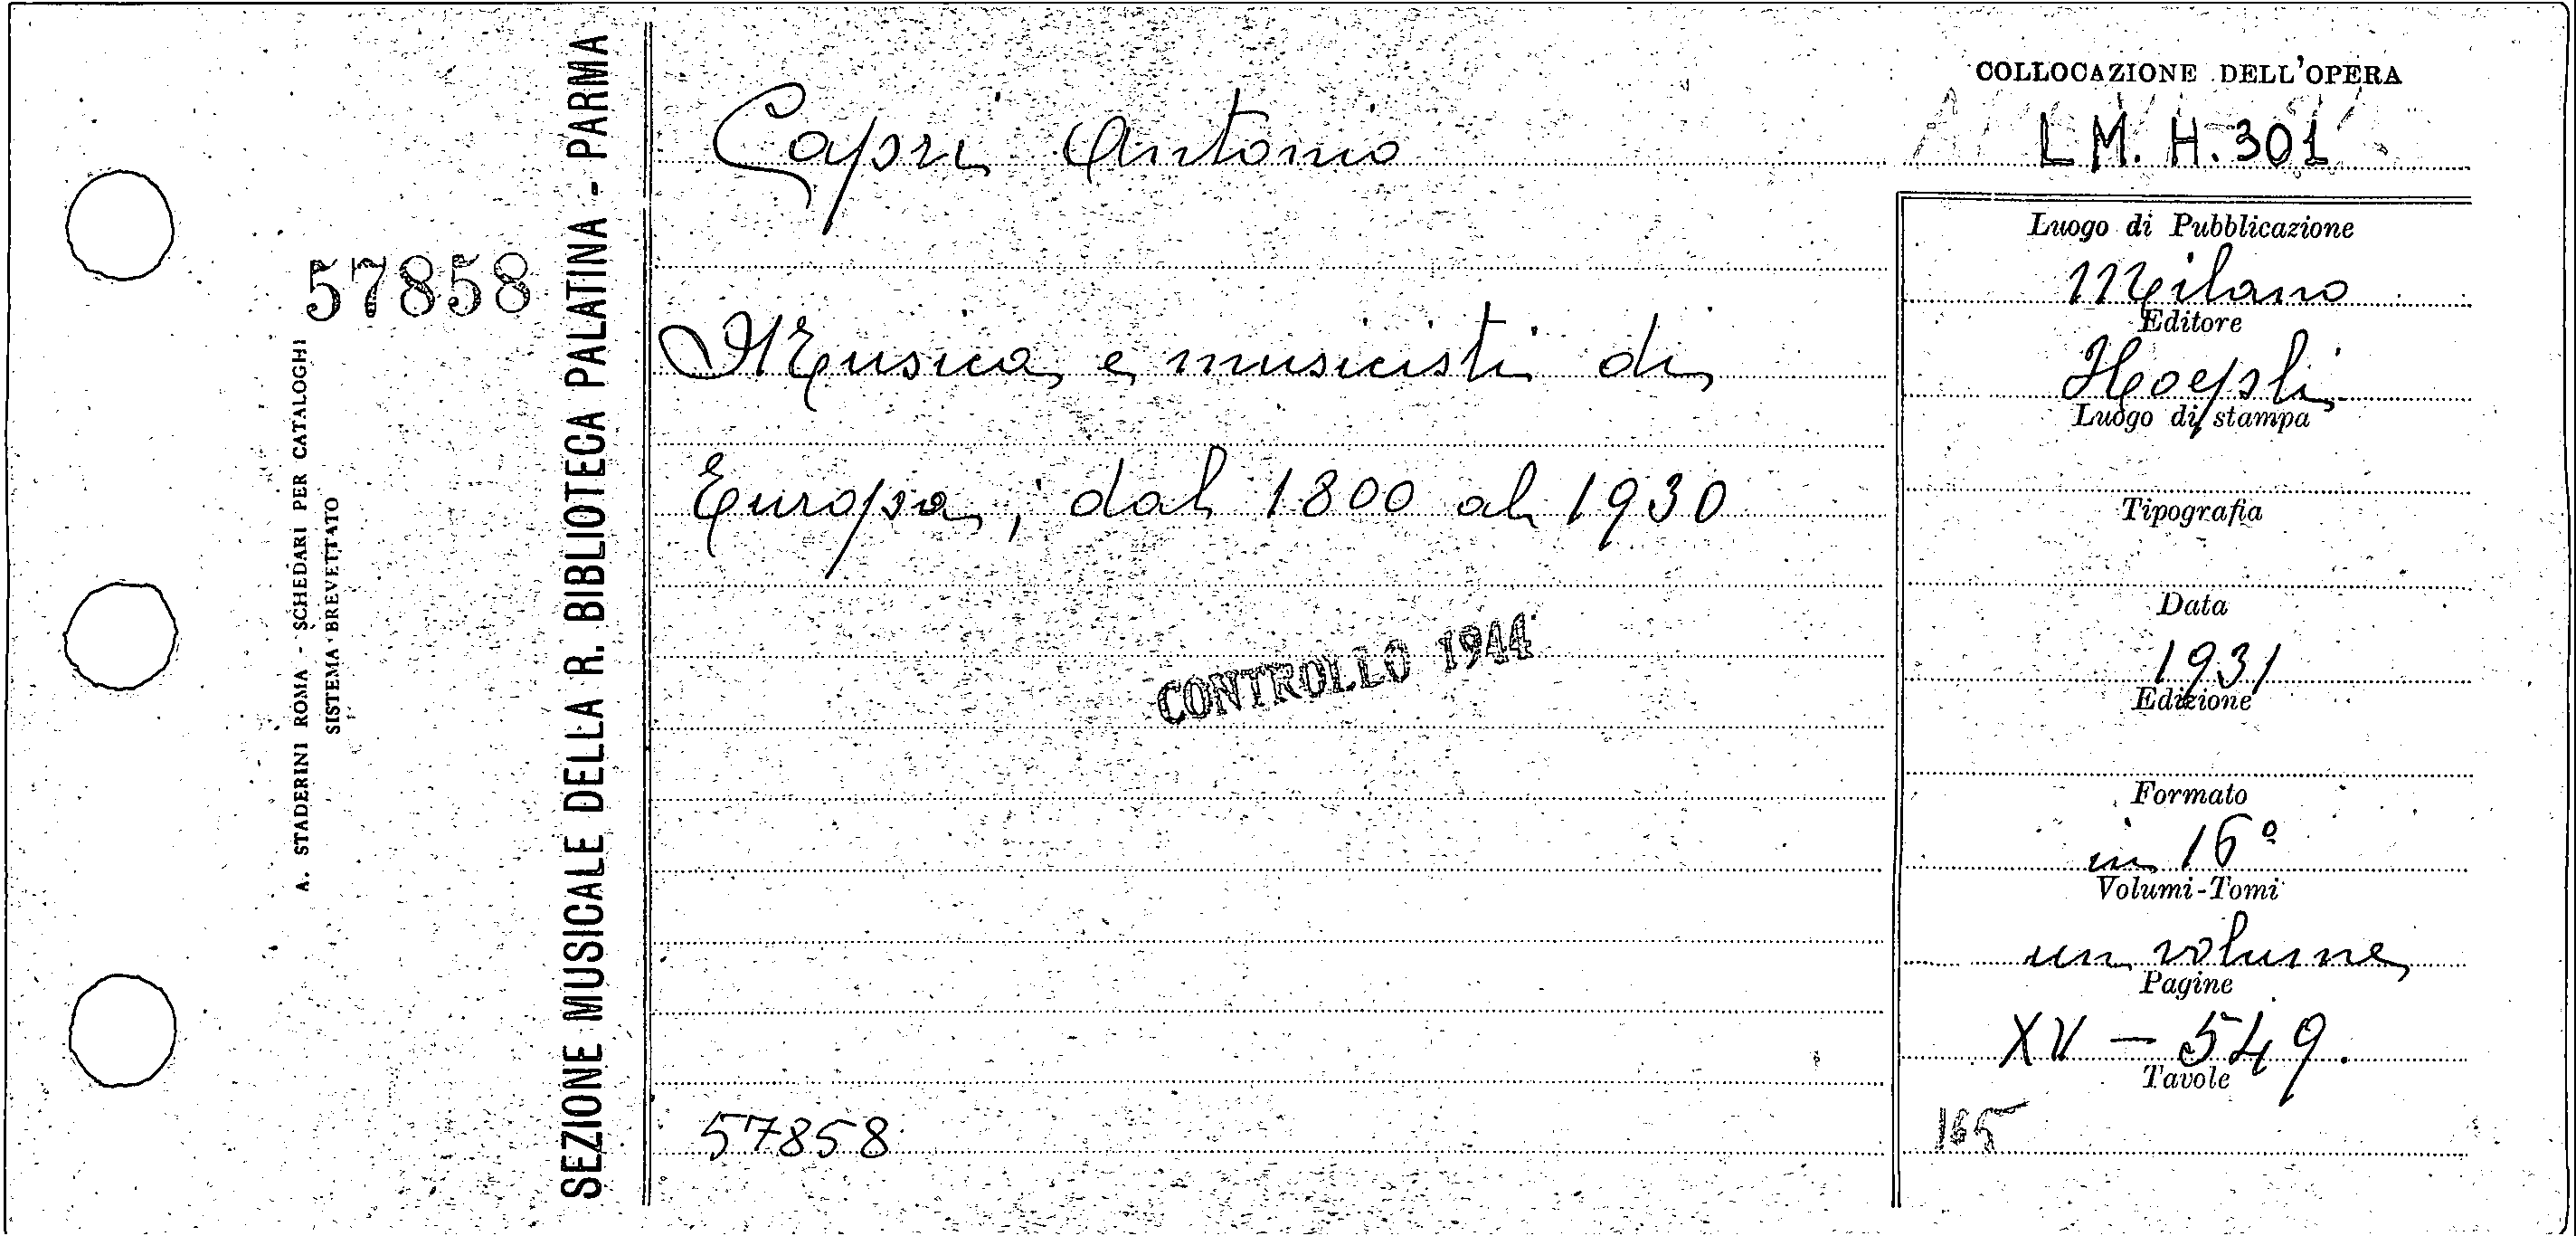 57858
A. STADERINI ROMA - SCHEDARI PER CATALOGHI
SISTEMA BREVETTATO
SEZIONE MUSICALE DELLA R. BIBLIOTECA PALATINA - PARMA
Capri Antonio
Musica e musicisti di
Europa, dal 1800 al 1930
CONTROLLO 1944
57858
COLLOCAZIONE DELL'OPERA
L M. H. 301
Luogo di Pubblicazione
Milano
Editore
Hoepli
Luogo di stampa
Tipografia
Data
1931
Edizione
Formato
in 16º
Volumi-Tomi
un volume
Pagine
XV - 549.
Tavole
165